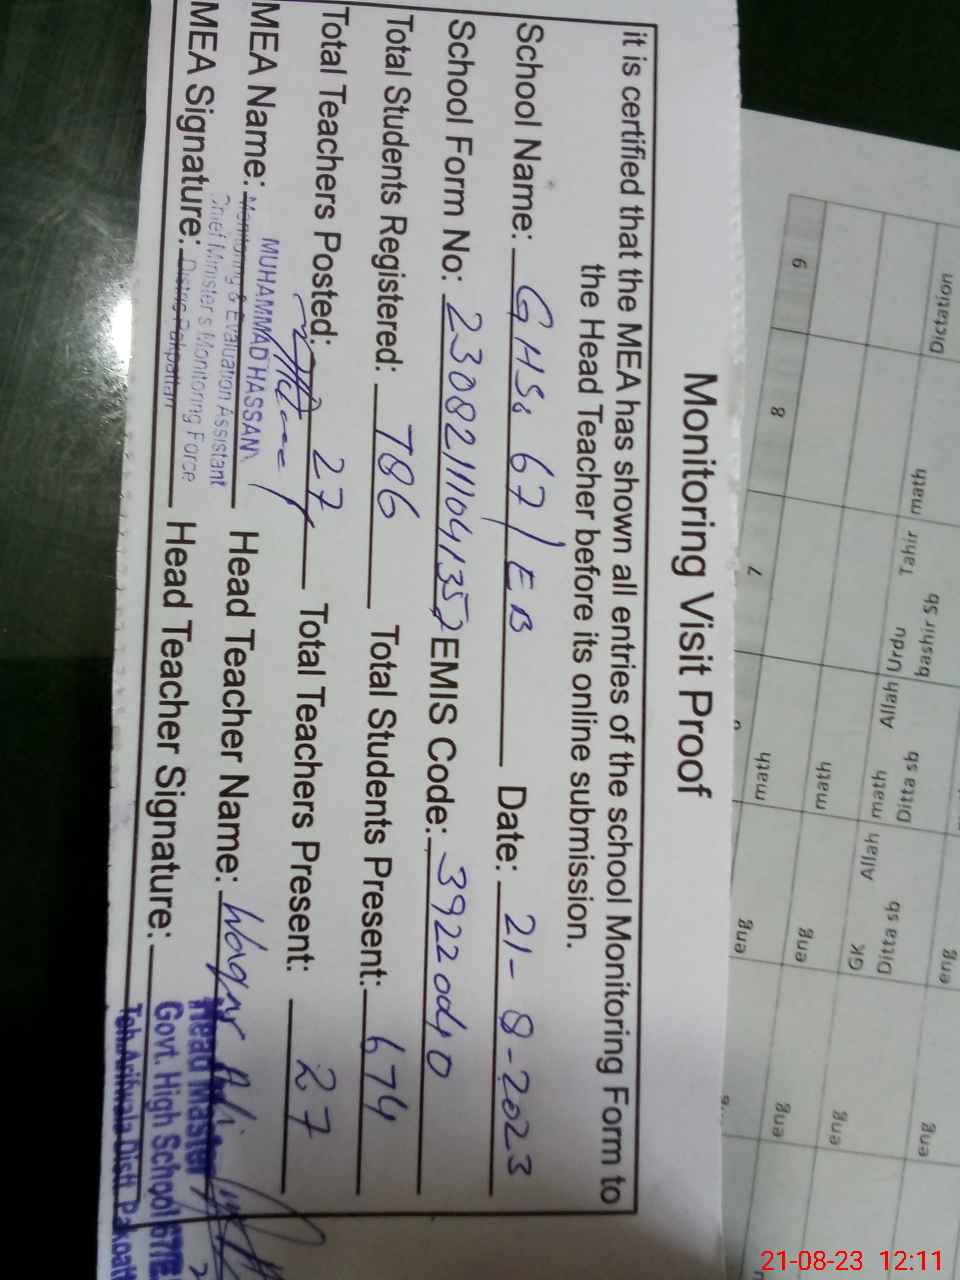 Monitoring Visit Proof
it is certified that the MEA has shown all entries of the school Monitoring Form to
the Head Teacher before its online submission.
School Name: GHSs 67/EB Date: 21-8-2023
School Form No: EMIS Code: 39220040
Total Students Registered: 786 Total Students Present: 674
Total Teachers Posted: 27 Total Teachers Present: 27
MUHAMMAD HASSAN
MEA Name: Monitoring & Evaluation Assistant Head Teacher Name: Waqar
Chief Minister's Monitoring Force
MEA Signature: Pakpattan Head Teacher Signature:
Head Master
Govt. High School 67/E
Teh. Arifwala Distt. Pakpatt
Dictation math bashir sb Ditta sb eng eng
Tahir Urdu Allah math Ditta sb
Allah GK
math eng eng
6 8 7 math eng eng
21-08-23 12:11